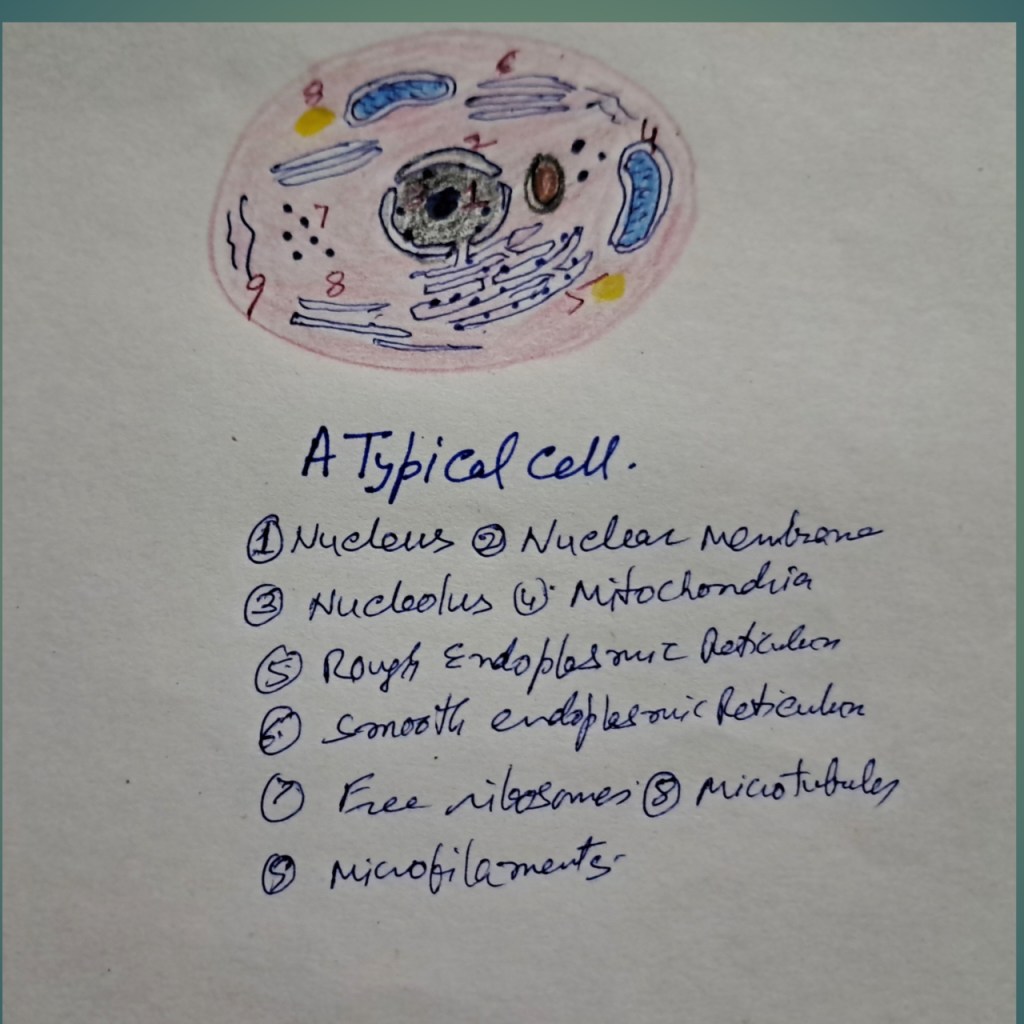 8 6
4
2
3 1
7
5
9 8
A Typical cell.
① Nucleus ② Nuclear Membrane
③ Nucleolus ④ Mitochondria
⑤ Rough Endoplasmic Reticulum
⑥ Smooth endoplasmic Reticulum
⑦ Free ribosomes ⑧ Microtubules
⑨ Microfilaments.